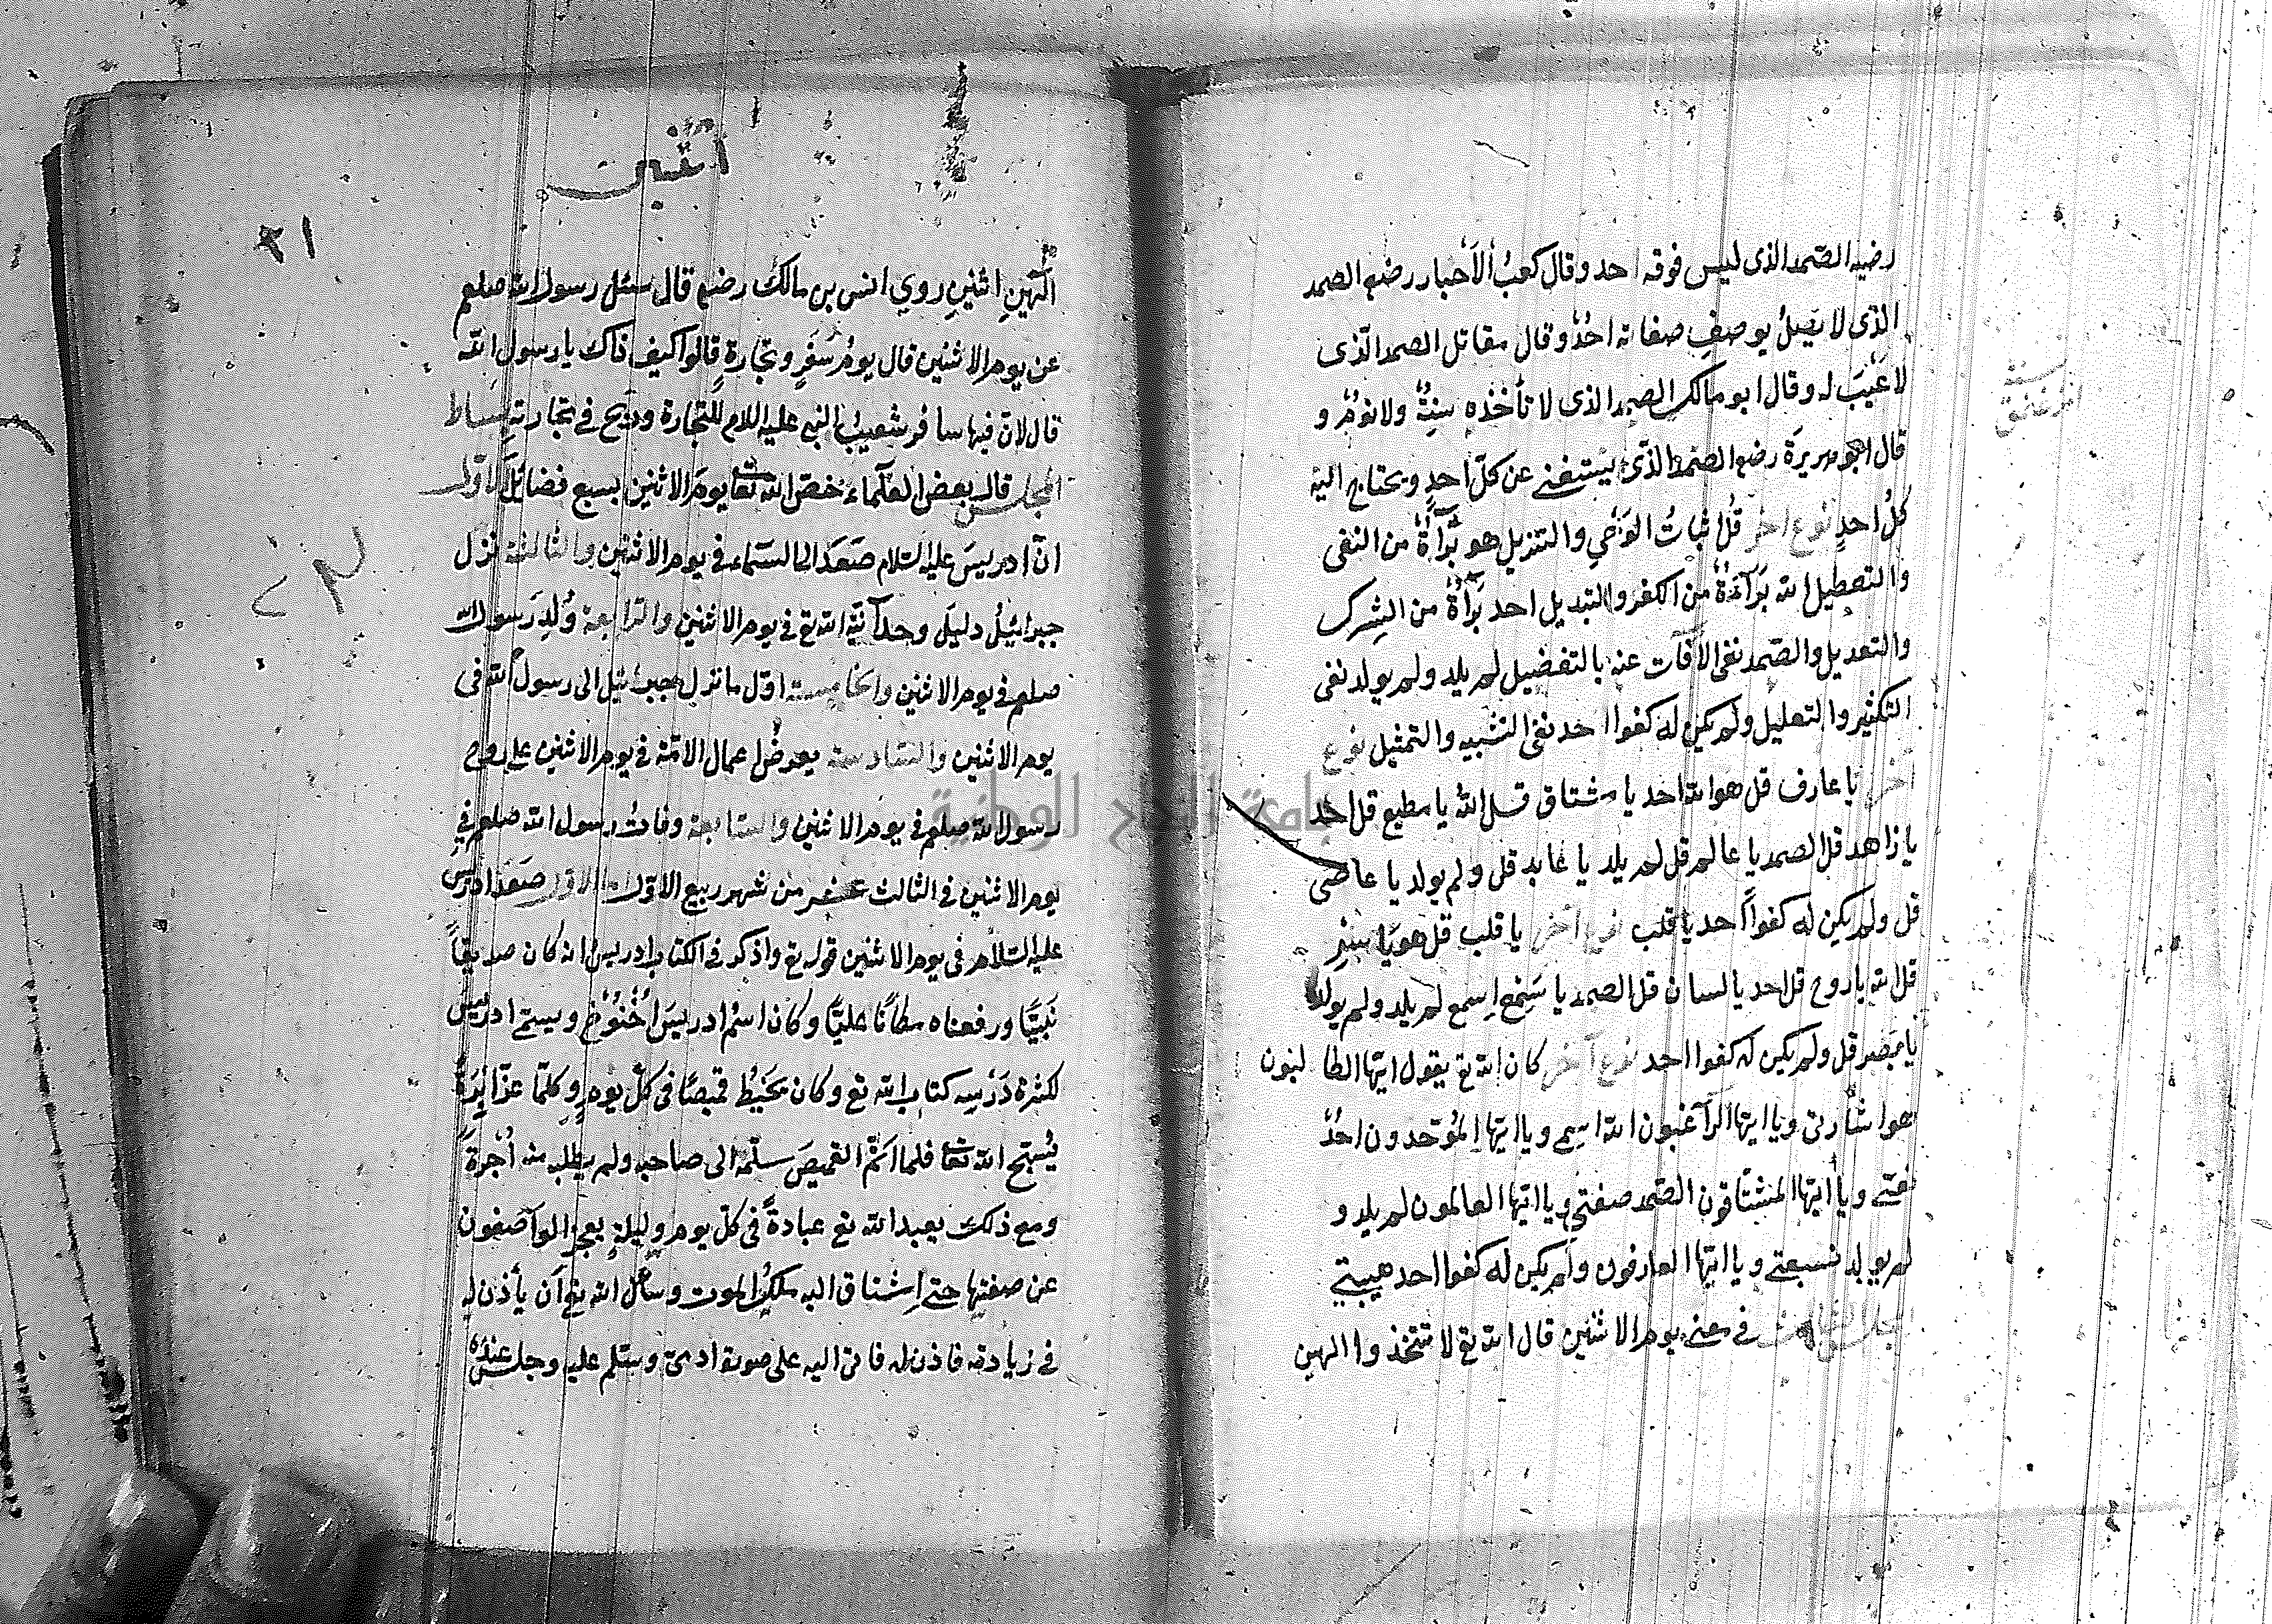 رضيه الصّمد الذى ليس فوقه احد وقال كعبُ الأَحبار رضع الصمد
الذى لا يَصِلُ بوصفِ صفاته احدٌ وقال مقاتل الصمد الّذى
لا عَيْبَ له وقال ابو مالك الصمد الذى لا تأخذه سِنةٌ ولا نومٌ و
قال ابو هريرَة رضع الصمد الذى يستغنے عن كلّ احدٍ ويحتاج اليه
كلُ احدٍ نوع آخر قُل اثباتُ الوَحْىِ والتنزيل هو بَرآةٌ من النفى
والتعطيل الله بَرآءةٌ من الكفر والتبديل احد بَرآةٌ من الشِرك
والتعديل والصّمد نفى الآفات عنه بالتفضيل لم يلد ولم يولد نفى
التكثير والتعليل ولم يكن له كفوا احد نفى التشبيه والتمثيل نوع
آخر يا عارف قل هو الله احد يا مشتاق قل الله يا مطيع قل احد
يا زاهد قل الصمد يا عالم قل لم يلد يا عابد قل ولم يولد يا عاصى
قل ولم يكن له كفواً احد يا قلب نوع آخر يا قلب قل هو يا سِرّ
قل الله يا روح قل احد يا لسان قل الصمد يا سَمْع اِسمع لم يلد ولم يولد
يا بَصر قل ولم يكن له كفوا احد نوع آخر كان الله تع يقول ايّها الطالبون
هو اشارتى ويا ايّها الرآغبون الله اسمے ويا ايّها المُوَحّدون احدٌ
نعتے ويا أيّها المشتاقون الصّمد صفتے ويا ايّها العالمون لم يلد و
لم يولد نسبتے ويا ايّها العارفون ولم يكن له كفوا احد هيبتے
المجلس الثالث فے معنے يوم الاثنين قال الله تع لا تتخذوا الهين
اثنين
٢١
اِلٰهَينِ اثنينِ روي انس بن مالك رضع قال سئل رسول الله صلعم
عن يوم الاثنين قال يومُ سَفَرٍ وتجارةٍ قالوا كيف ذاك يا رسول الله
قال لانّ فيها سافر شعيبُ النبى عليه السلام للتجارة وربح فى تجارته بساط
المجلس قال بعض العلماء خصّ الله تعا يومَ الاثنين بسبع فضائل الاوّل
انّ ادريسَ عليه السلام صَعَدَ الى السّماء فى يوم الاثنين والثالثة نزل
جبرائيلُ دليل وحدآنيّة الله تع فى يوم الاثنين والرابعة وُلِدَ رسول الله
صلعم فى يوم الاثنين والخامسة اوّل ما نزل جبرائيل الى رسول الله فى
يوم الاثنين والسّادسة يعرضُ اعمال الامّة فى يوم الاثنين على روح
رسول الله صلعم فى يوم الاثنين والسّابعة وفاتُ رسول الله صلعم فى
يوم الاثنين فى الثالث عشر من شهر ربيع الاوّل امّا الاوّل صَعَدَ ادريس
عليه السّلام فى يوم الاثنين قوله تع واذكر فى الكتاب ادريس انه كان صديقاً
نَبيّاً ورفعناه مكانًا عليّاً وكان اسْمُ ادريسَ اُخْنُوْخ ويسمّے ادريس
لكثرة دَرْسِه كتاب الله تع وكان يَخِيطُ قميصًا فى كلّ يومٍ وكلّما غرّ اِبرَةً
يُسبّح الله تعا فلما اَتَمَّ القميصَ سلّمه الى صاحبه ولم يطلب منه اُجْرةً
ومع ذلك يعبد الله تع عبادةً فى كلّ يوم وليلةٍ يعجز الوآصفون
عن صفتها حتے اِشتاق اليه ملكُ الموت وسأل الله تع اَن يأذن له
فے زيارته فاذن له فاتى اليه على صورة ادمىّ وسلّم عليه وجلس عنده
جامعة النجاح الوطنية